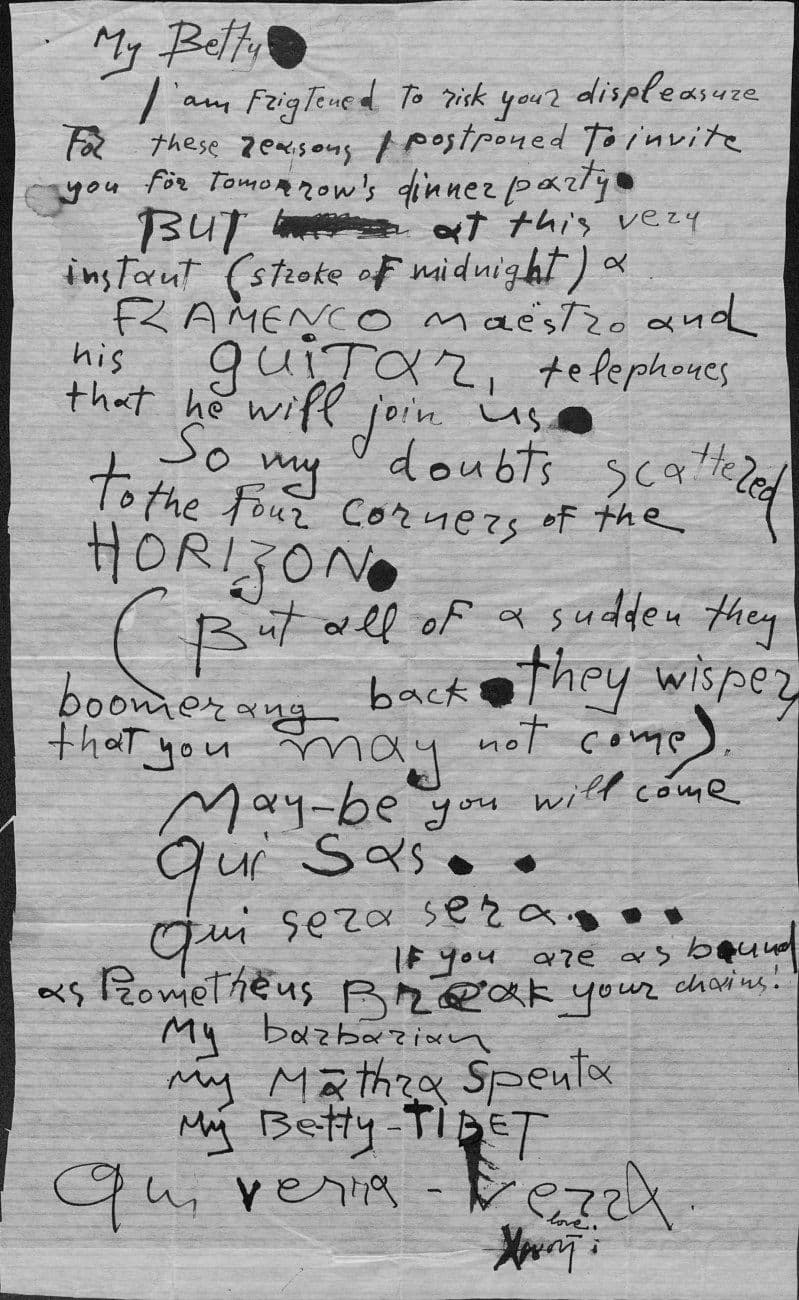 My Betty.
I am Frigtened to risk your displeasure
For these reasons I postponed to invite
you for tomorrow's dinner party.
BUT at this very
instant (stroke of midnight) a
FLAMENCO maëstro and
his guiTar, telephones
that he will join us.
So my doubts scattered
to the four corners of the
HORIZON.
(But all of a sudden they
boomerang back. they wisper
that you may not come).
May-be you will come
qui sas..
qui sera sera....
If you are as bound
as Prometheus Break your chains!
My barbarian
My Māthra Spenta
My Betty-TIBET
Qui verra - Verra.
love.